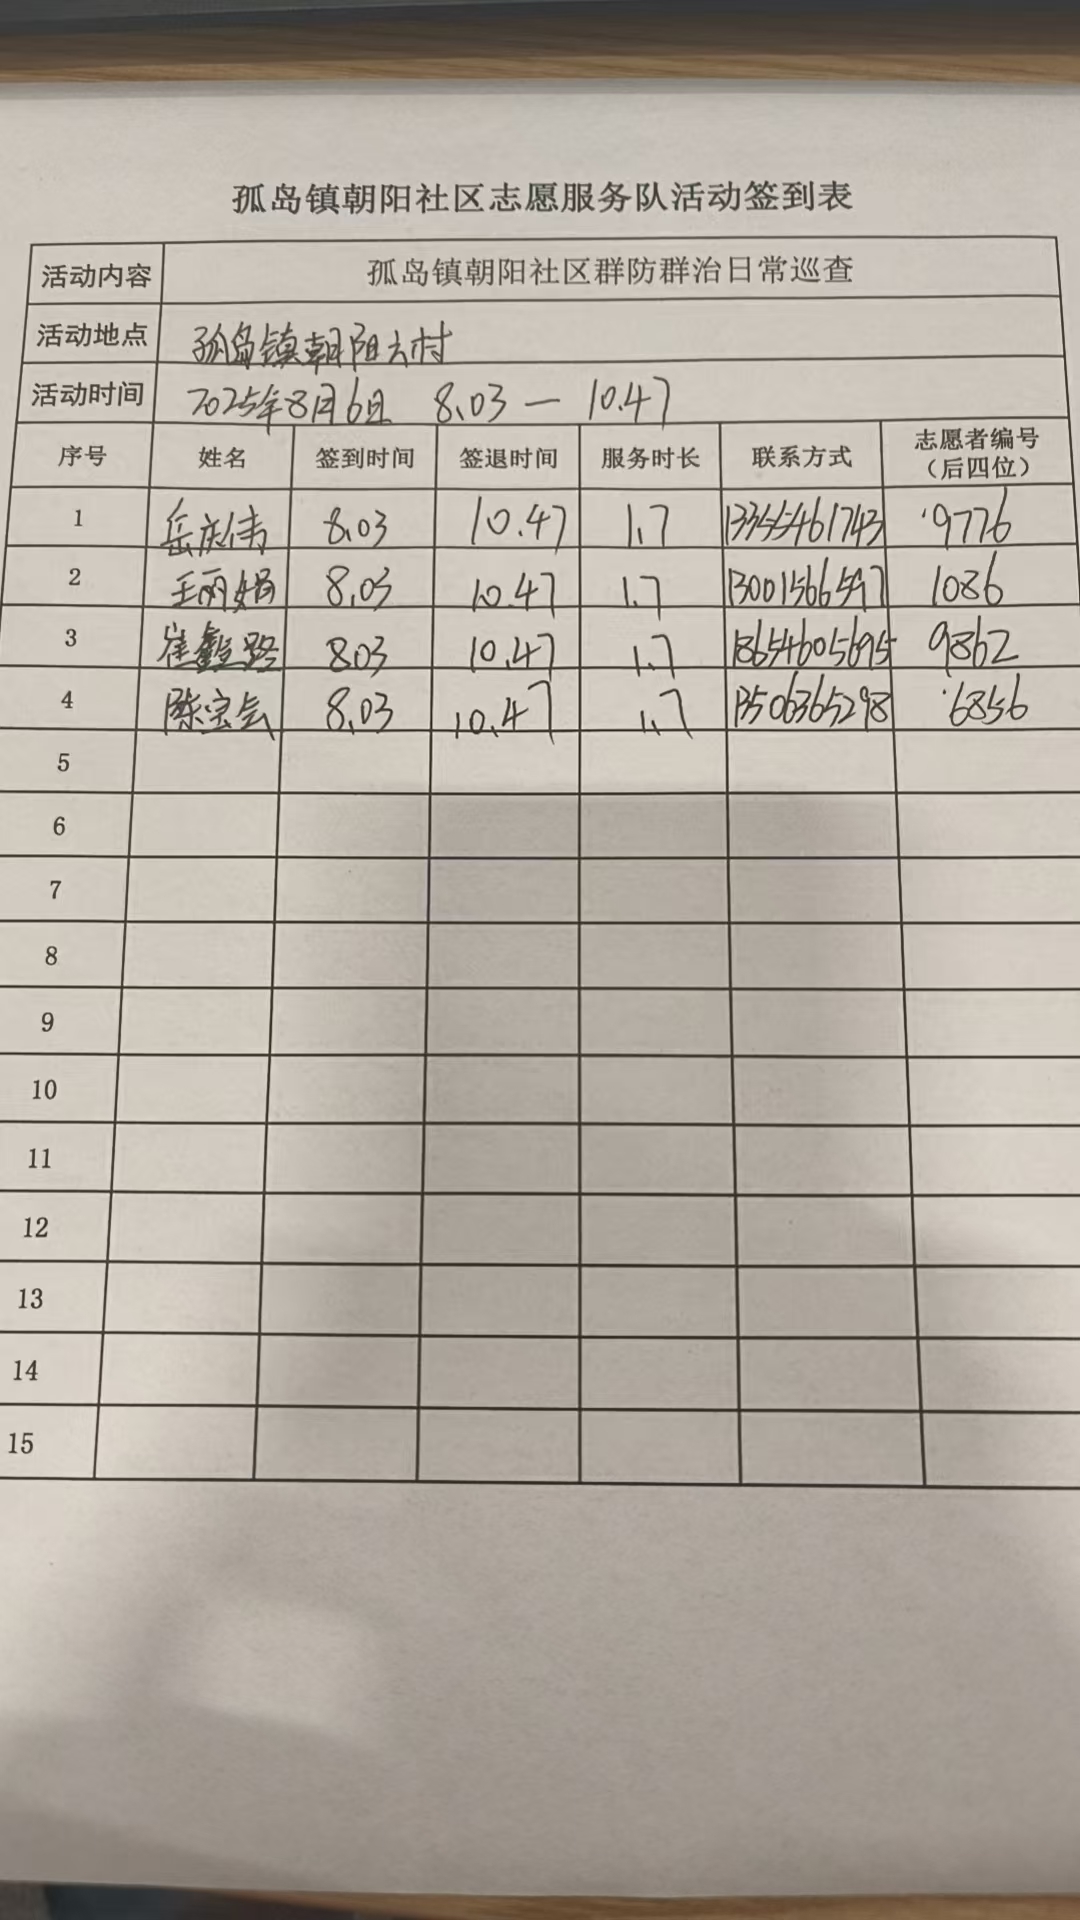 孤岛镇朝阳社区志愿服务队活动签到表
活动内容 孤岛镇朝阳社区群防群治日常巡查
活动地点 孤岛镇朝阳六村
活动时间 2025年8月6日 8.03 — 10.47
序号 姓名 签到时间 签退时间 服务时长 联系方式 志愿者编号（后四位）
1 岳庆伟 8.03 10.47 1.7 13355461743 9776
2 王丽娟 8.03 10.47 1.7 13001566597 1086
3 崔鑫路 8.03 10.47 1.7 18654605695 9862
4 陈宝云 8.03 10.47 1.7 13506365298 6856
5
6
7
8
9
10
11
12
13
14
15